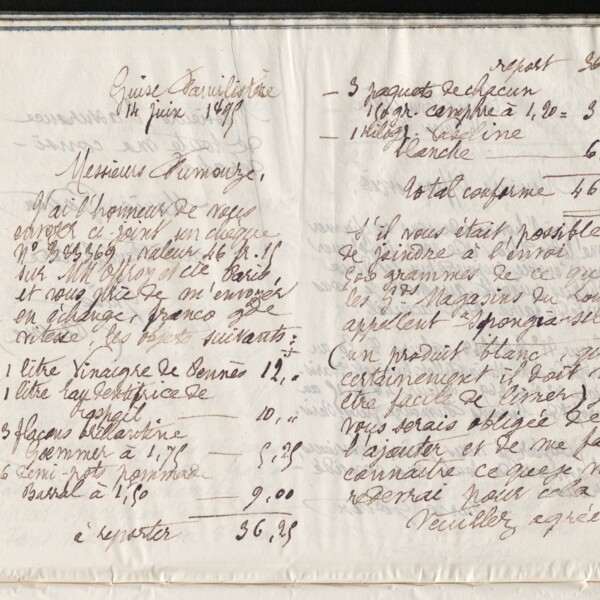 Guise Familistère
14 juin 1895
Messieurs Fumouze,
J'ai l'honneur de vous
envoyer ci-joint un chèque
N° 323369, valeur 46 fr. 15
sur MM Offroy et Cie Paris
et vous prie de m'envoyer
en échange, franco gde
vitesse, les objets suivants:
1 litre Vinaigre de Pennès 12,"
1 litre Eau dentifrice de
— 10,"
3 flacons brillantine
à 1,75 — 5,25
6 demi-pots pommade
Barral à 1,50 — 9,00
à reporter 36,25
report 36
— 3 paquets de chacun
150 gr. camphre à 1,20 = 3
— 1 kilogr. Vaseline
blanche — 6
Total conforme 46
S'il vous était possible
de joindre à l'envoi
500 grammes de ce que
les Gds Magasins du Lou
appellent "Spongia-sel
(un produit blanc, qu
certainement il doit
être facile de livrer)
vous serais obligée de
l'ajouter et de me fa
connaître ce que je v
redevrai pour cela
Veuillez agrée